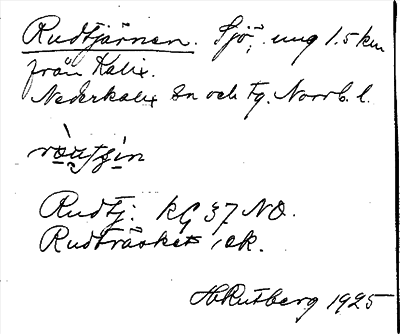 Rudtjärnen. Sjö, ung 1.5 km
från Kalix.
Nederkalix sn och tg. Norrb. l.
Rudtj. KG 37 NO.
Rudträsket, ek.
H Rutberg 1925